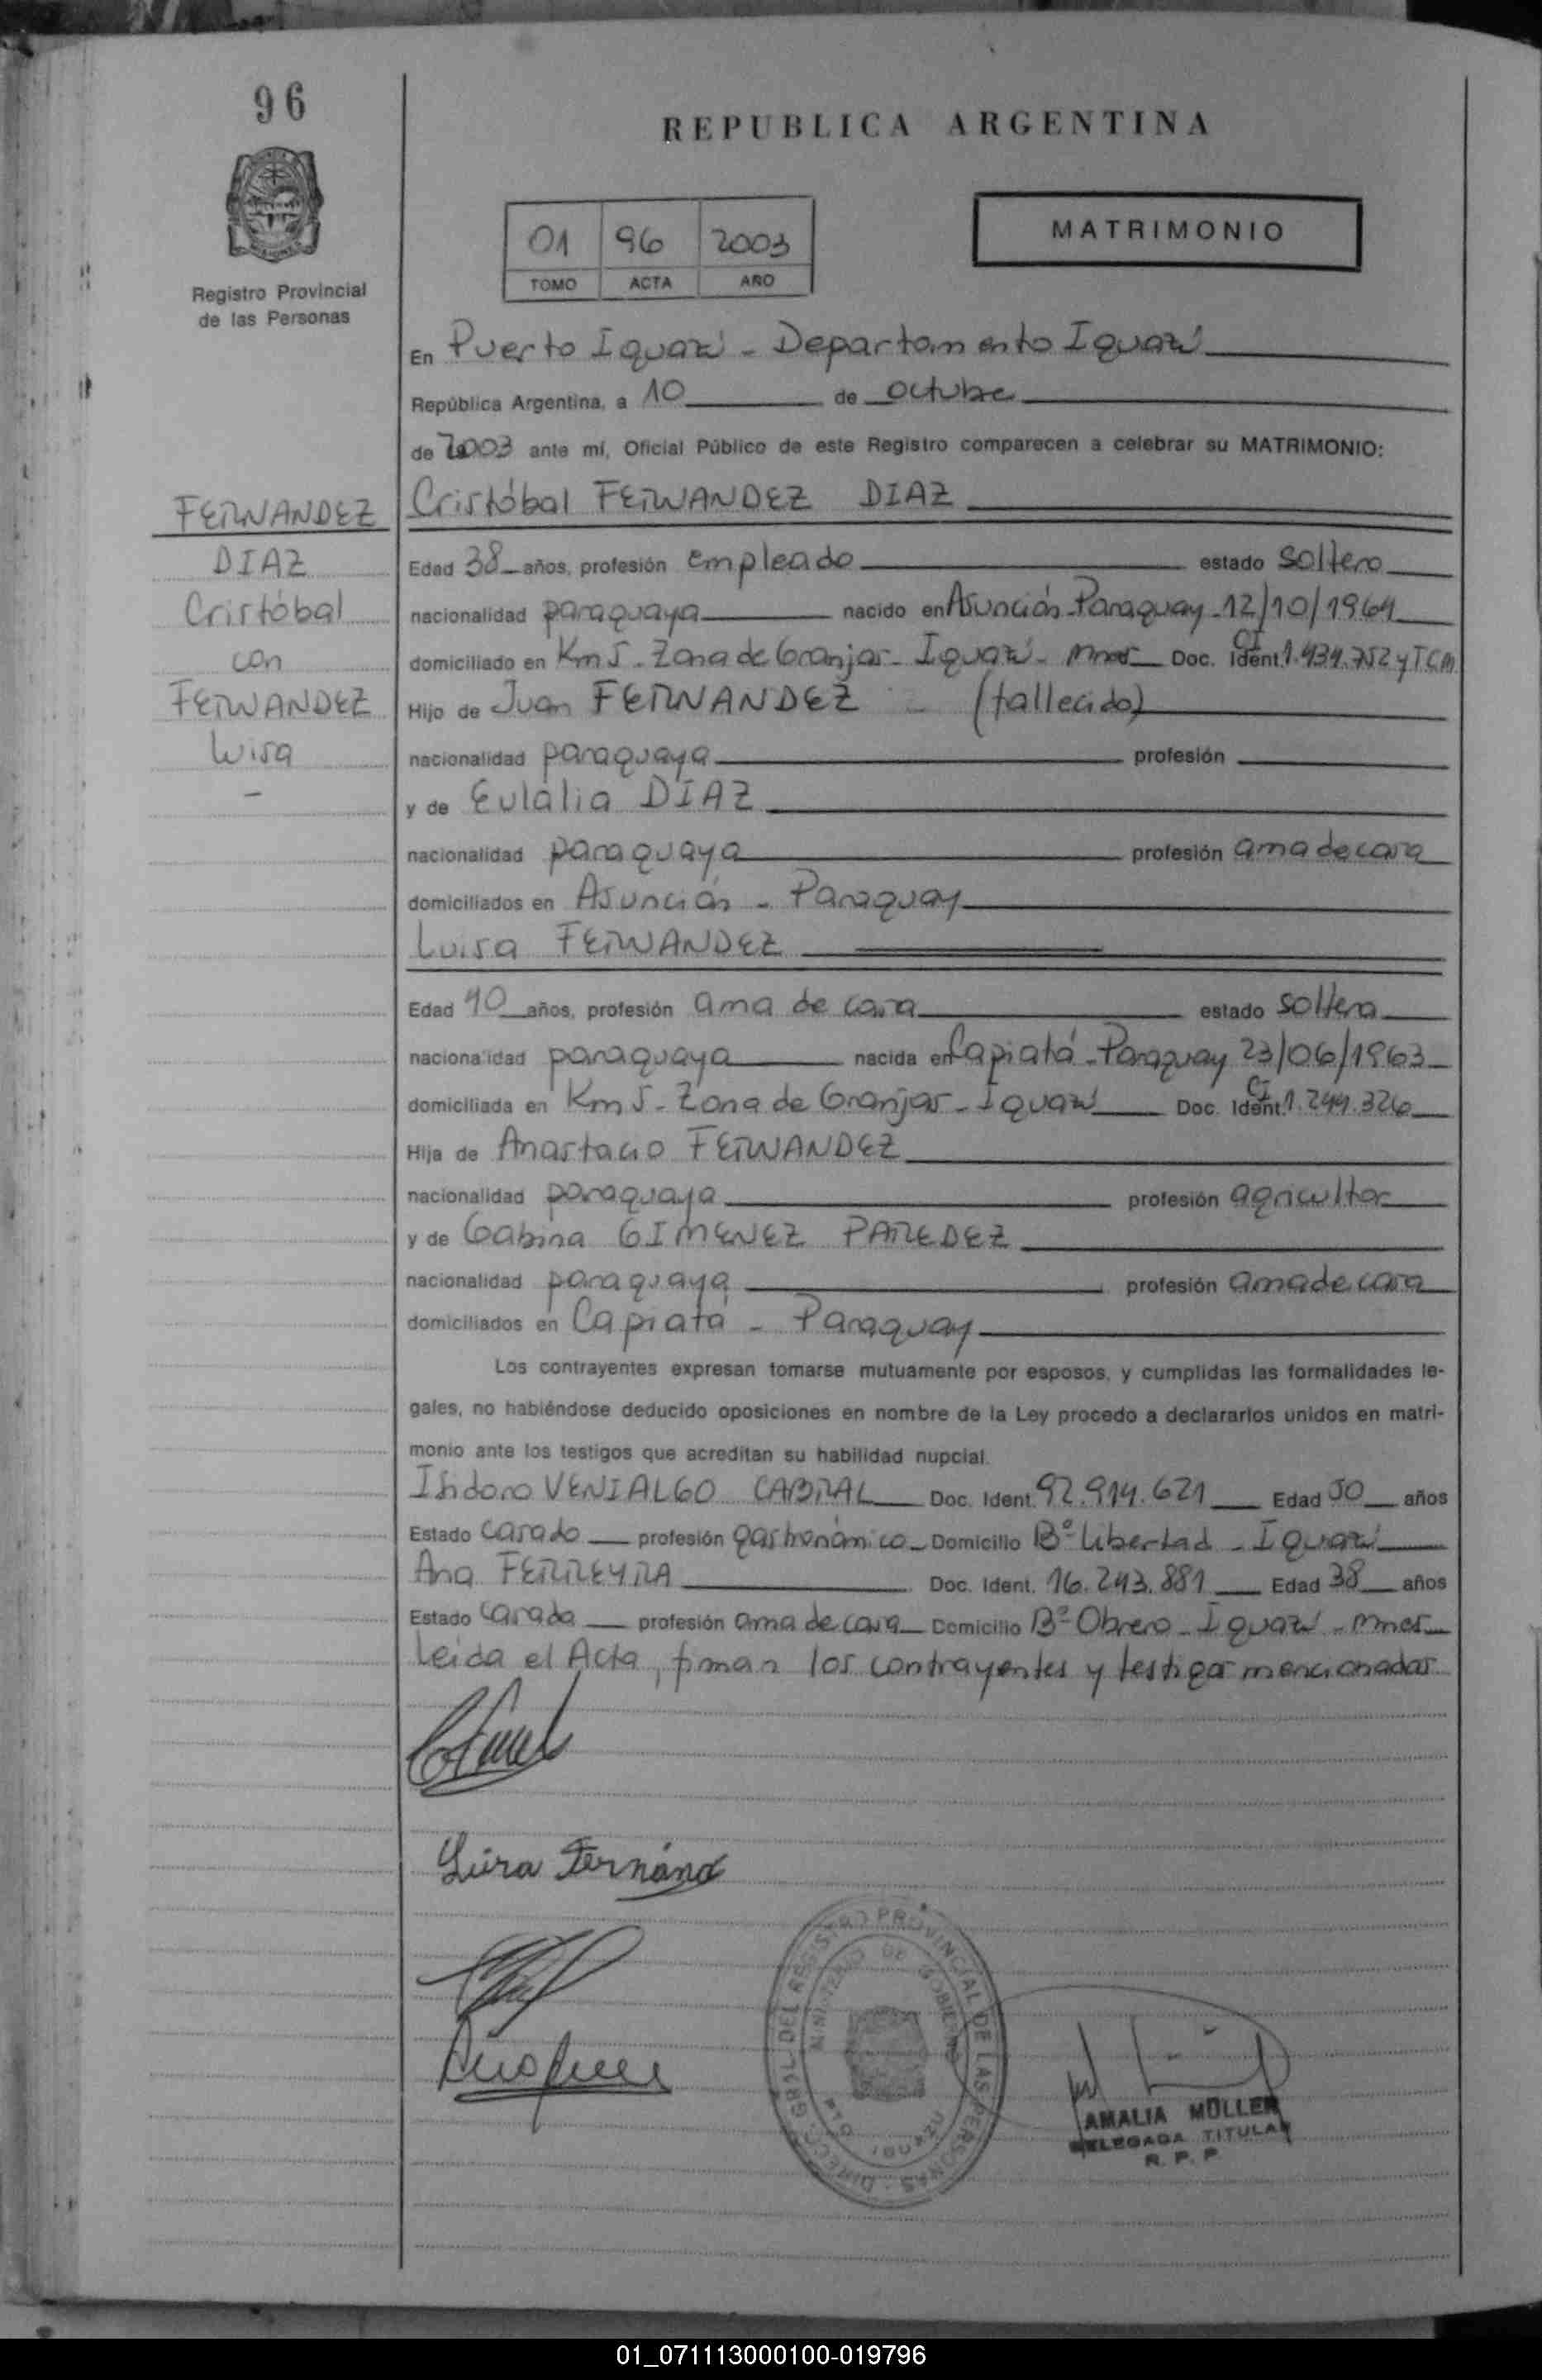 96
REPUBLICA ARGENTINA
01 96 2003
TOMO ACTA AÑO
MATRIMONIO
Registro Provincial
de las Personas
En Puerto Iguazú - Departamento Iguazú
República Argentina, a 10 de octubre
de 2003 ante mí, Oficial Público de este Registro comparecen a celebrar su MATRIMONIO:
FERNANDEZ
DIAZ
Cristóbal
con
FERNANDEZ
Luisa
-
Cristóbal FERNANDEZ DIAZ
Edad 38 años, profesión empleado estado soltero
nacionalidad paraguaya nacido en Asunción-Paraguay-12/10/1964
domiciliado en Km 5-Zona de Granjas-Iguazú-Mnes Doc. Ident. CI 1.434.752 y TCM
Hijo de Juan FERNANDEZ (fallecido)
nacionalidad paraguaya profesión
y de Eulalia DIAZ
nacionalidad paraguaya profesión ama de casa
domiciliados en Asunción - Paraguay
Luisa FERNANDEZ
Edad 40 años, profesión ama de casa estado soltera
nacionalidad paraguaya nacida en Capiatá-Paraguay 23/06/1963
domiciliada en Km 5-Zona de Granjas-Iguazú Doc. Ident. CI 1.244.326
Hija de Anastacio FERNANDEZ
nacionalidad paraguaya profesión agricultor
y de Gabina GIMENEZ PAREDEZ
nacionalidad paraguaya profesión ama de casa
domiciliados en Capiatá - Paraguay
Los contrayentes expresan tomarse mutuamente por esposos, y cumplidas las formalidades le-
gales, no habiéndose deducido oposiciones en nombre de la Ley procedo a declararlos unidos en matri-
monio ante los testigos que acreditan su habilidad nupcial.
Isidoro VENIALGO CABRAL Doc. Ident. 92.914.621 Edad 50 años
Estado casado profesión gastronómico Domicilio Bº Libertad - Iguazú
Ana FERREYRA Doc. Ident. 16.243.881 Edad 38 años
Estado casada profesión ama de casa Domicilio Bº Obrero - Iguazú - Mnes
Leída el Acta, firman los contrayentes y testigos mencionados
Luisa Fernánd
DIRECC. GRAL. DEL REGISTRO PROVINCIAL DE LAS PERSONAS
MINISTERIO DE GOBIERNO
PTO. IGUAZU
AMALIA MULLER
DELEGADA TITULAR
R. P. P.
01_071113000100-019796